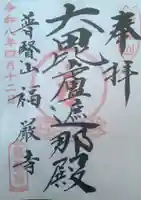 奉拝
大毘盧遮那殿
普賢山 福巌寺
令和八年四月十二日